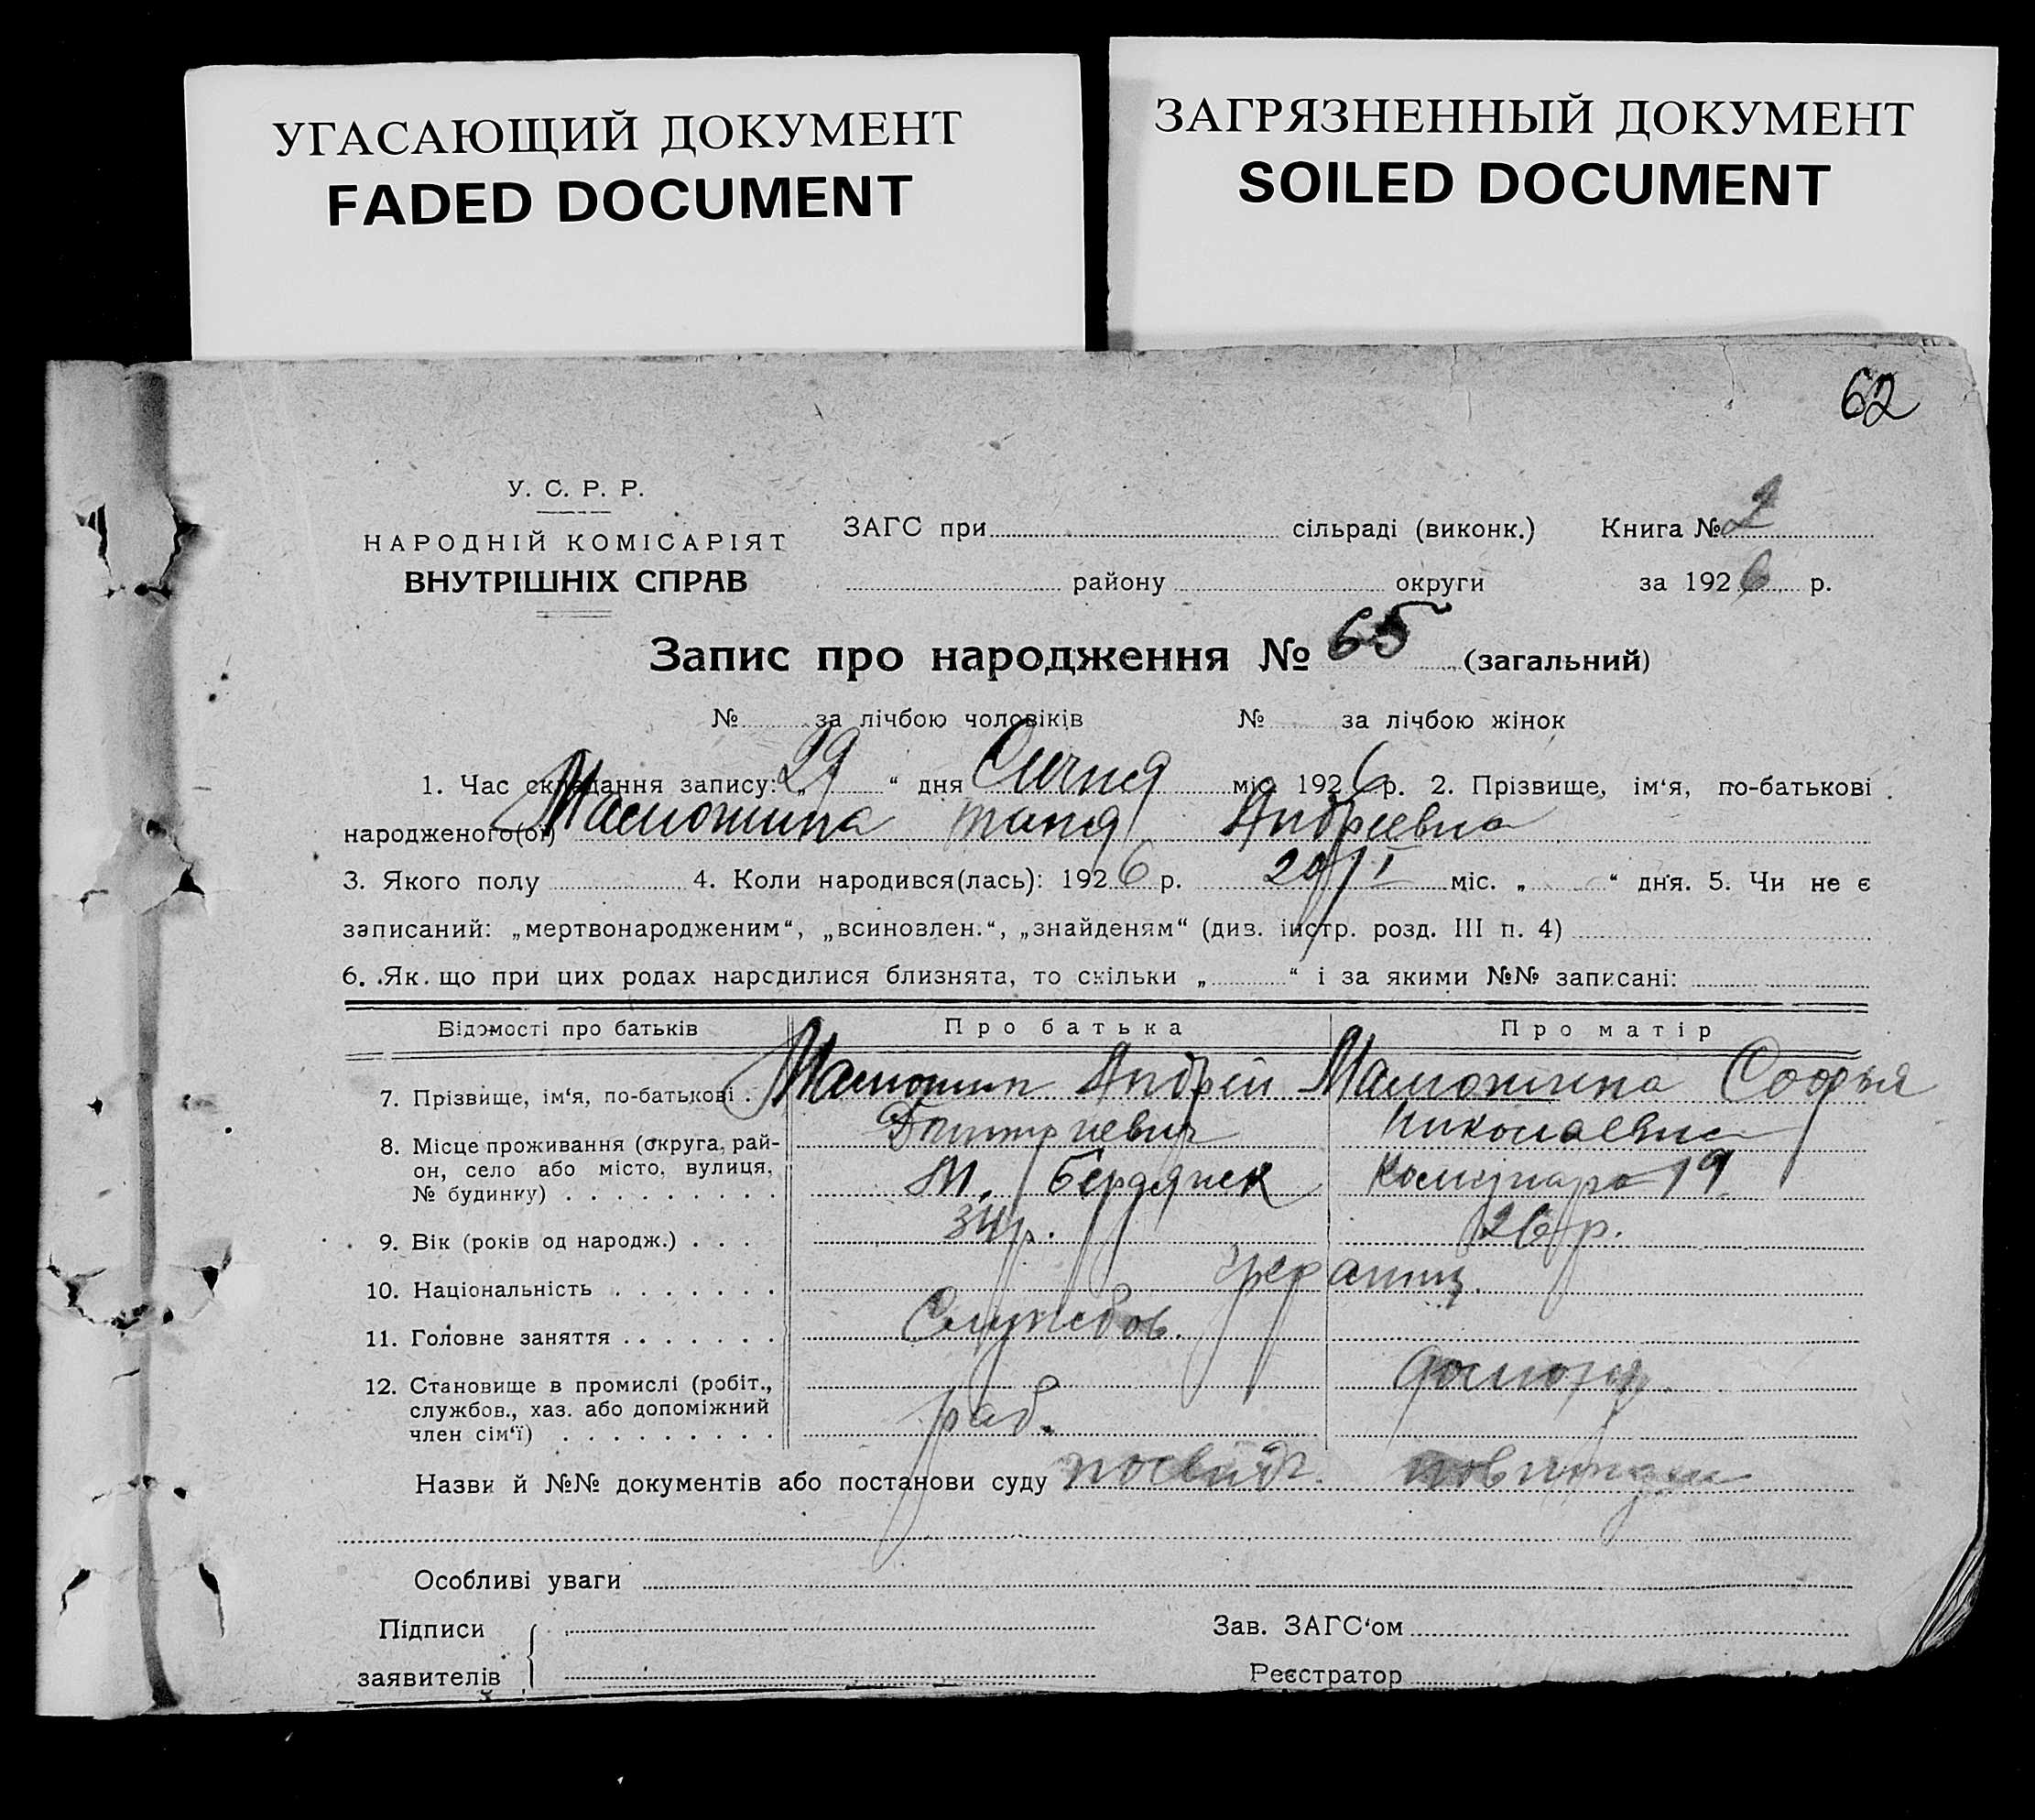 УГАСАЮЩИЙ ДОКУМЕНТ
FADED DOCUMENT
ЗАГРЯЗНЕННЫЙ ДОКУМЕНТ
SOILED DOCUMENT
62
У. С. Р. Р.
НАРОДНІЙ КОМІСАРІЯТ
ВНУТРІШНІХ СПРАВ
ЗАГС при сільраді (виконк.) Книга № 2
району округи за 1926 р.
Запис про народження № 65 (загальний)
№ за лічбою чоловіків № за лічбою жінок
1. Час складання запису: „29“ дня Січня міс. 1926 р. 2. Прізвище, ім‘я, по-батькові
народженого(ої) Таня Андреевна
3. Якого полу 4. Коли народився(лась): 1926 р. 20/I міс. „ “ дня. 5. Чи не є
записаний: „мертвонародженим“, „всиновлен.“, „знайденям“ (див. інстр. розд. III п. 4)
6. Як що при цих родах народилися близнята, то скільки „ “ і за якими №№ записані:
Відомості про батьків Про батька Про матір
7. Прізвище, ім‘я, по-батькові . Андрей Софья
Дмитриевич Николаевна
8. Місце проживання (округа, рай-
он, село або місто, вулиця,
№ будинку) . . . . . . . . . м. Бердянск 19
9. Вік (років од народж.) . . . 34 р. 26 р.
10. Національність . . . . . . .
11. Головне заняття . . . . . . . Службов.
12. Становище в промислі (робіт.,
службов., хаз. або допоміжний
член сім‘ї) . . . . . . . . . раб.
Назви й №№ документів або постанови суду посвідч.
Особливі уваги
Підписи
заявителів
Зав. ЗАГС‘ом
Реєстратор